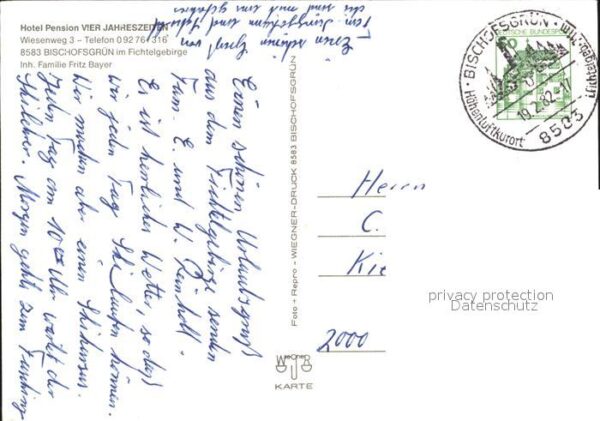 Hotel Pension VIER JAHRESZEITEN
Wiesenweg 3 – Telefon 0 92 76 / 316
8583 BISCHOFSGRÜN im Fichtelgebirge
Inh. Familie Fritz Bayer
Einen schönen Urlaubsgruß
aus dem Fichtelgebirge senden
Fam. E. und W. Reinholt.
Es ist herrliches Wetter, so daß
wir jeden Tag Ski laufen können.
Wir machen aber einen Skikursus.
Jeden Tag um 10 Uhr wartet der
Skilehrer. Morgen geht's zum
Einen schönen Gruß von
und
Foto + Repro - WIEGNER-DRUCK 8583 BISCHOFSGRÜN
WIEGNER
KARTE
DEUTSCHE BUNDESPOST
50
BISCHOFSGRÜN
Höhenluftkurort
19.2.82-17
8583
Herrn
C.
Kie
2000
privacy protection
Datenschutz